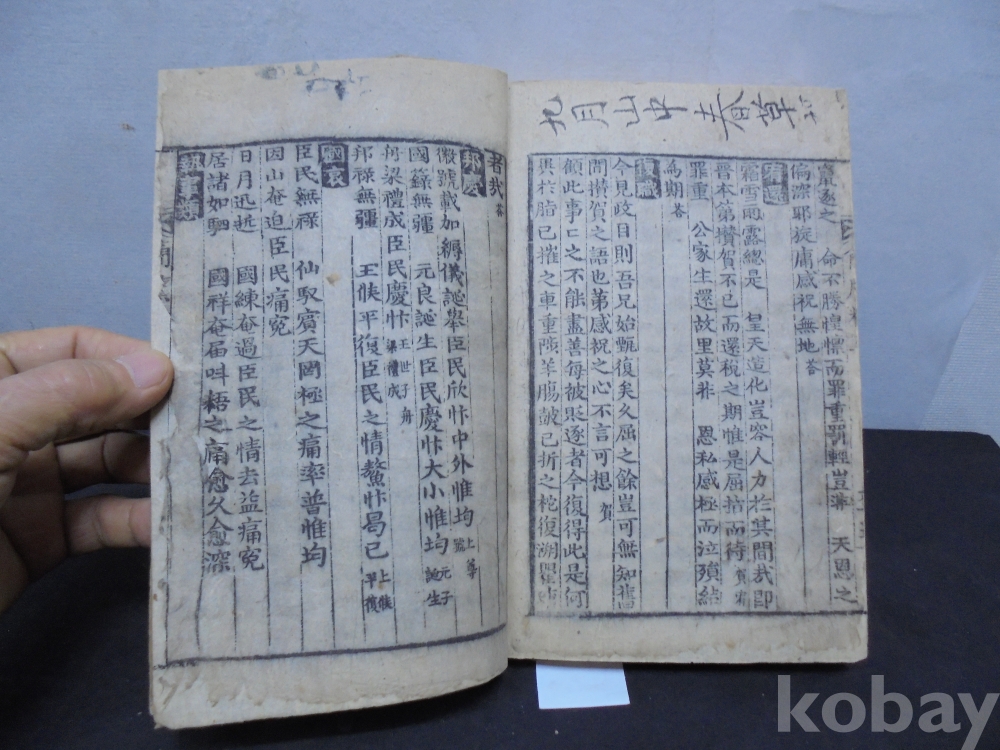 九月山中春草
命不勝惶懔而罪重罰輕豈非 天恩之
偏深耶旋庸感祝無地 答
宥還
霜雪雨露總是 皇天造化豈容人力於其間哉即
晉本第攢賀不已而還稅之期惟是屈指而待 賀宥
罪重 公家生還故里莫非 恩私感極而泣殞結
為期 答
復職
今見政目則吾兄始甄復矣久屈之餘豈可無知舊
間攢賀之語也第感祝之心不言可想 賀
顧此事之不能盡善每被貶逐者今復得此是何
與拄脂已摧之車重陟羊膓皷已折之柁復湖瞿
者哉 答
邦慶
徽號載加縟儀誕舉臣民欣忭中外惟均 上尊號
國籙無疆 元良誕生臣民慶忭大小惟均 元子誕生
舟梁禮成臣民慶忭 王世子舟梁禮成
邦祿無疆 王候平復臣民之情鰲忭曷已 上候平復
國哀
臣民無祿 仙馭賓天罔極之痛率普惟均
因山奄迫臣民痛寃
日月迅逝 國練奄過臣民之情去益痛寃
居諸如駟 國祥奄届呌梧之痛愈久愈深
kobay